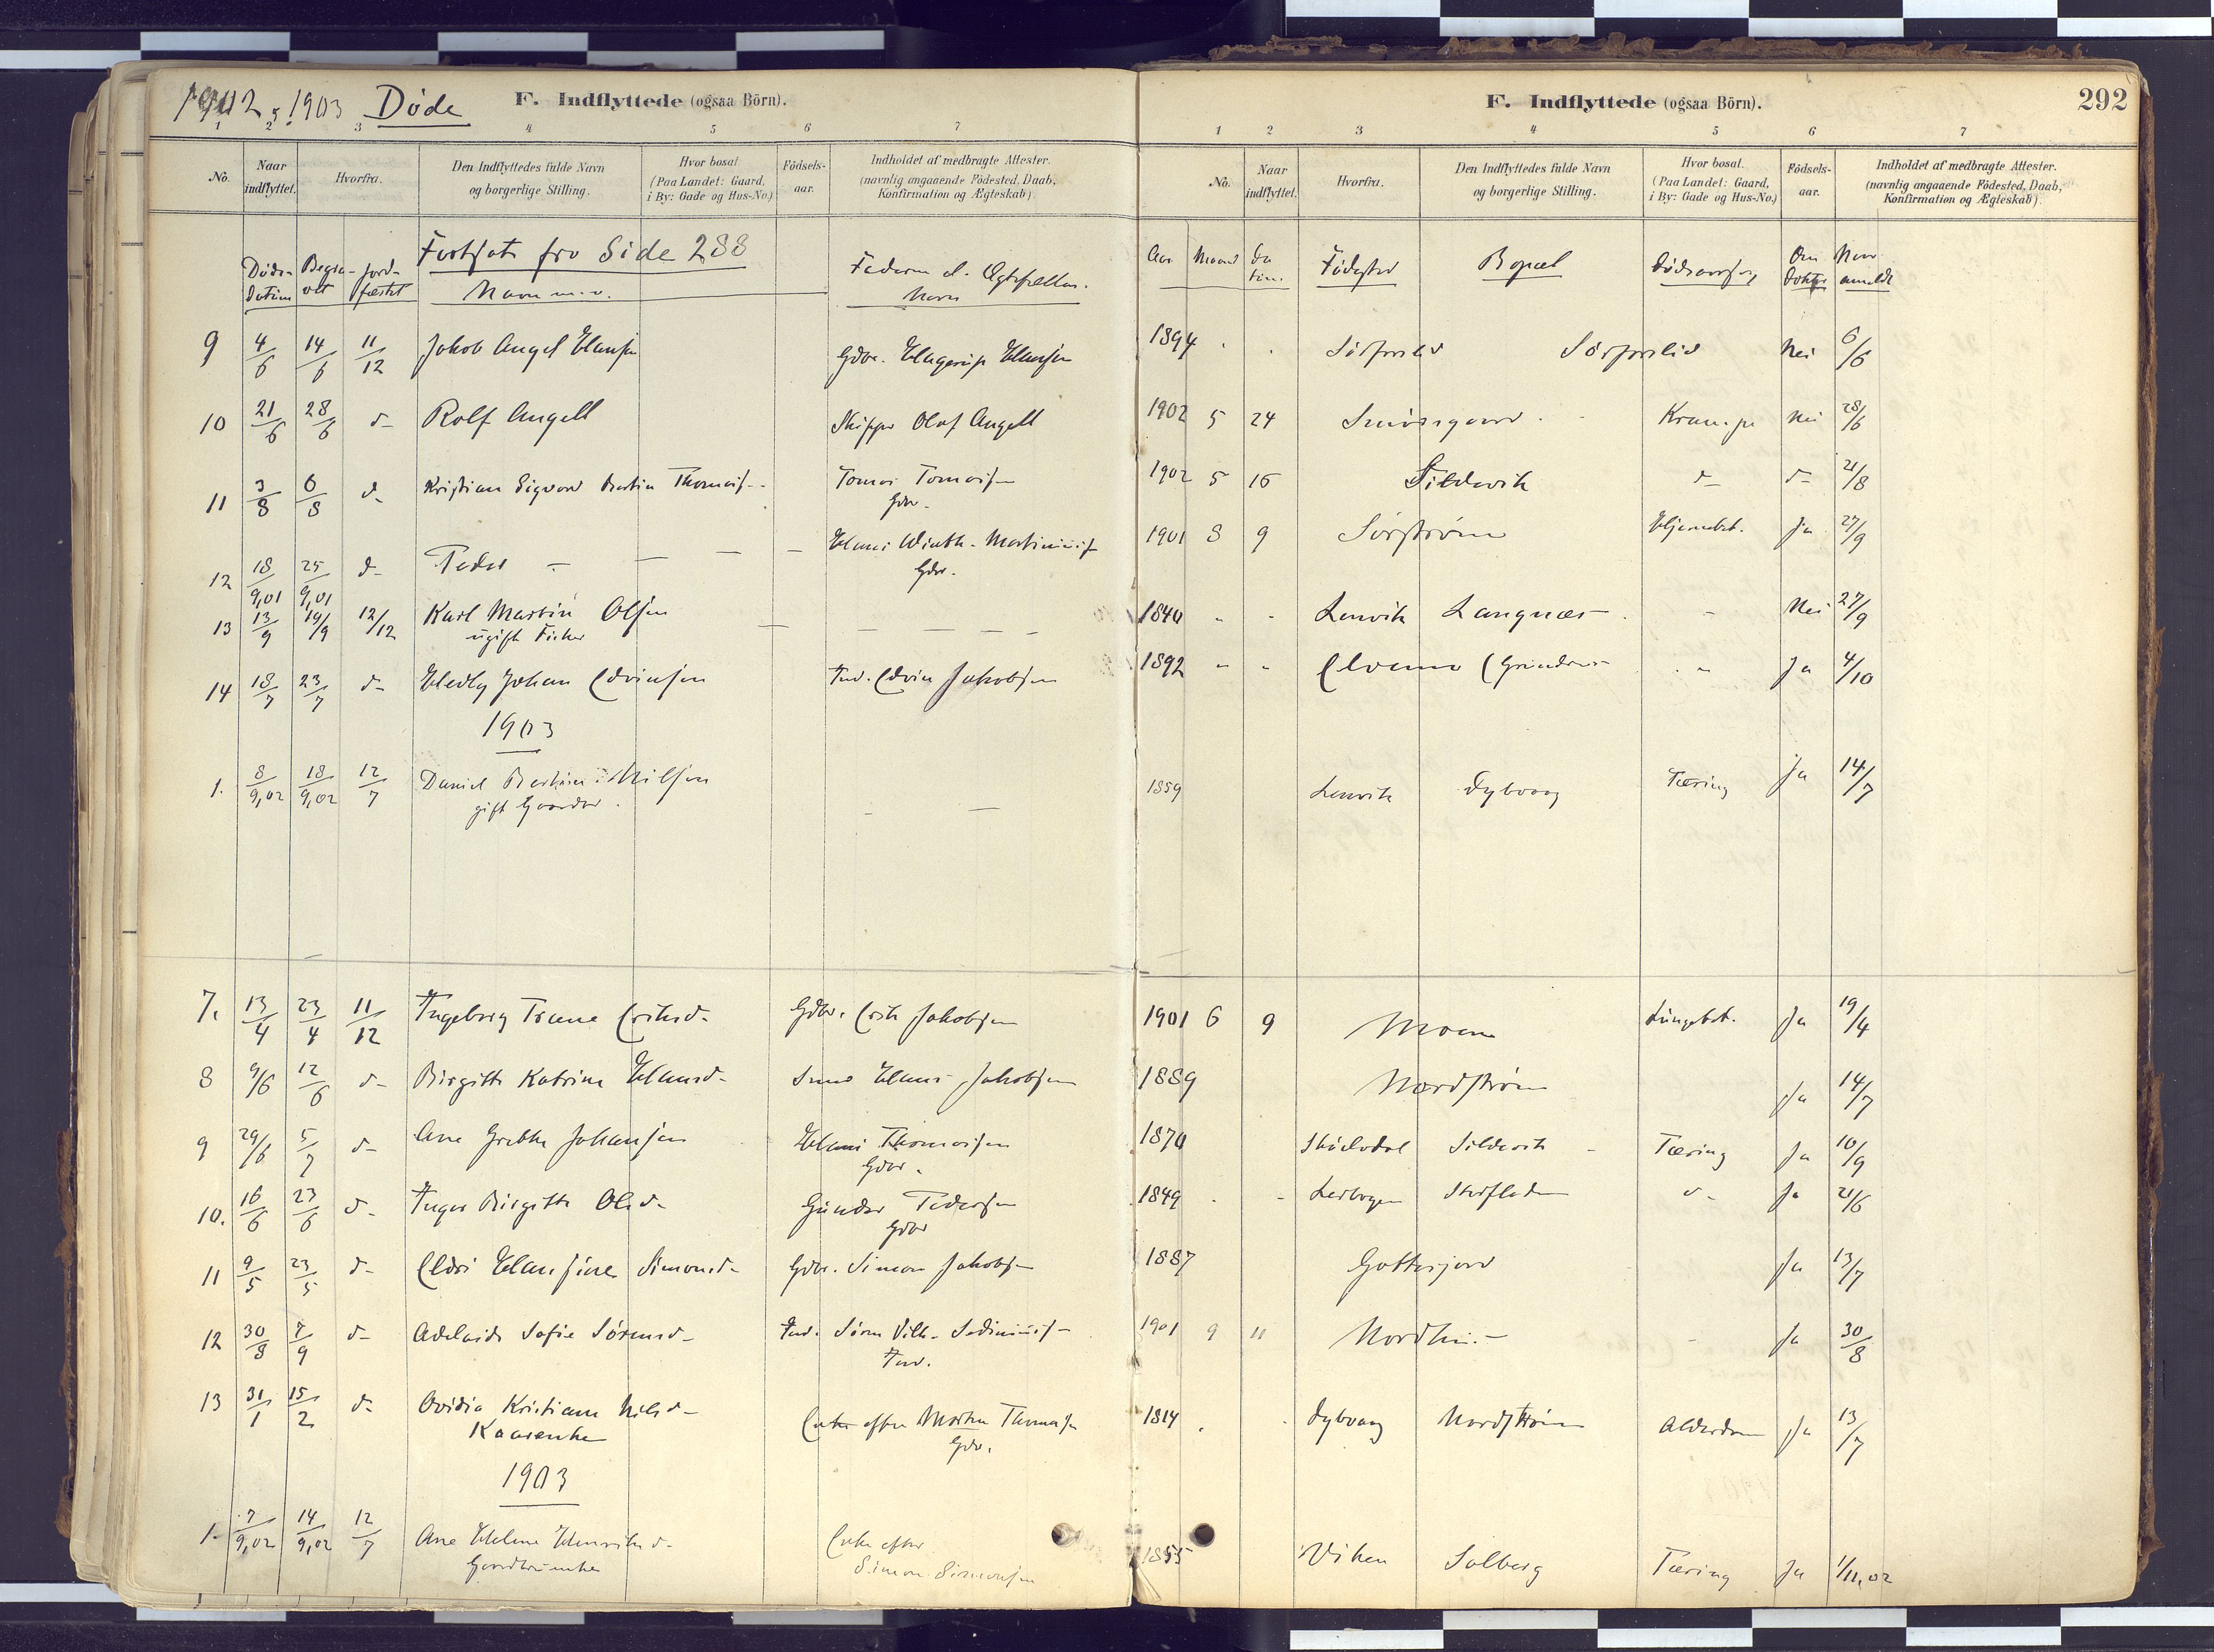 1902, 1903 Døde
F. Indflyttede (ogsaa Börn).
1 2 3 4 5 6 7
No. Naar indflyttet. Hvorfra. Den Indflyttedes fulde Navn og borgerlige Stilling. Hvor bosat (Paa Landet: Gaard, i By: Gade og Hus-No.) Födsels-aar. Indholdet af medbragte Attester. (navnlig angaaende Födested, Daab, Konfirmation og Ægteskab).
Fortsat fra Side 288
Døds-datum Begra-vet Jord-fæstet Navn m.v. Faderens el. Ægtefællens Navn
9 4/6 14/6 11/12 Jakob Angel Hansen Gbr. Hagerup Hansen
10 21/6 28/6 d- Rolf Angell Skipper Olaf Angell
11 3/8 6/8 d- Kristian Sigvard Martin Thomais- Tomas Tomasen
Gbr.
12 18/9,01 25/9,01 d- Peder - - - - Hans Winth. Martinius-
Gbr.
13 13/9 19/9 12/12 Karl Martin Olsen - - - -
ugift Fisker
14 18/7 23/7 d- Hedly Johan Edvinsen Ind. Edvin Jakobsen
1903
1. 8/9,02 18/9,02 12/7 Daniel Nilsen - -
gift Gaardbr.
7. 13/4 23/4 11/12 Ingeborg Trine Eriksd- Gbr. Erik Jakobsen
8 9/6 12/6 d- Birgitte Katrine Hansd- Hans Jakobsen
9 29/6 5/7 d- Ane Grethe Johansen Hans Thomasen
Gbr.
10. 16/6 23/6 d- Inger Birgitte Olsd- Gunder Pedersen
Gbr
11 9/5 23/5 d- Eldri Hansine Simonsd- Gbr. Simon Jakobs-
12 30/8 7/9 d- Adelaide Sofie Sørensd- Ind. Søren Vilh.
Ind.
13 31/1 15/2 d- Ovidia Kristiane Nilsd- Enke efter Morten Thomasen
Kaarenke Gbr.
1903
1- 7/9,02 14/9,02 12/7 Ane Helene Henriksd- Enke efter
Simon Simonsen
F. Indflyttede (ogsaa Börn). 292
1 2 3 4 5 6 7
No. Naar indflyttet. Hvorfra. Den Indflyttedes fulde Navn og borgerlige Stilling. Hvor bosat. (Paa Landet: Gaard, i By: Gade og Hus-No.) Födsels-aar. Indholdet af medbragte Attester. (navnlig angaaende Födested, Daab, Konfirmation og Ægteskab).
Aar Maaned Da tum. Fødested Bopæl Dødsaarsag Om Doktor Naar anmeldt
1894 Sørforslid Sørforslid Nei 6/6
1902 5 24 Smörsgaard Krampe Nei 28/6
1902 5 16 Sildevik d- d- 21/8
1901 8 9 Sørstrøm Hjernebet. Ja 27/9
1840 Lenvik Langnæs - Nei 27/9
1892 Elvemo (Ja 4/10
1859 Lenvik Dybvaag Tæring Ja 14/7
1901 6 9 Moen Lungebet. Ja 19/4
1889 Nordstrøm Ja 14/7
1870 Skødedal Sildevik - Tæring Ja 10/9
1849 d- Ja 21/6
1887 Gottesjord Ja 13/7
1901 9 11 - Ja 30/8
1814 Dybvaag Nordstrøm Alderdom Ja 13/7
1855 Viken Solberg Tæring Ja 1/11,02